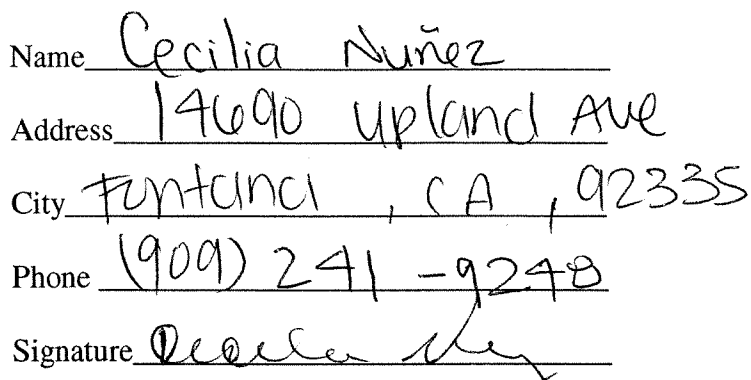 Name Cecilia Nuñez
Address 14690 Upland Ave
City Fontana, CA, 92335
Phone (909) 241-9248
Signature